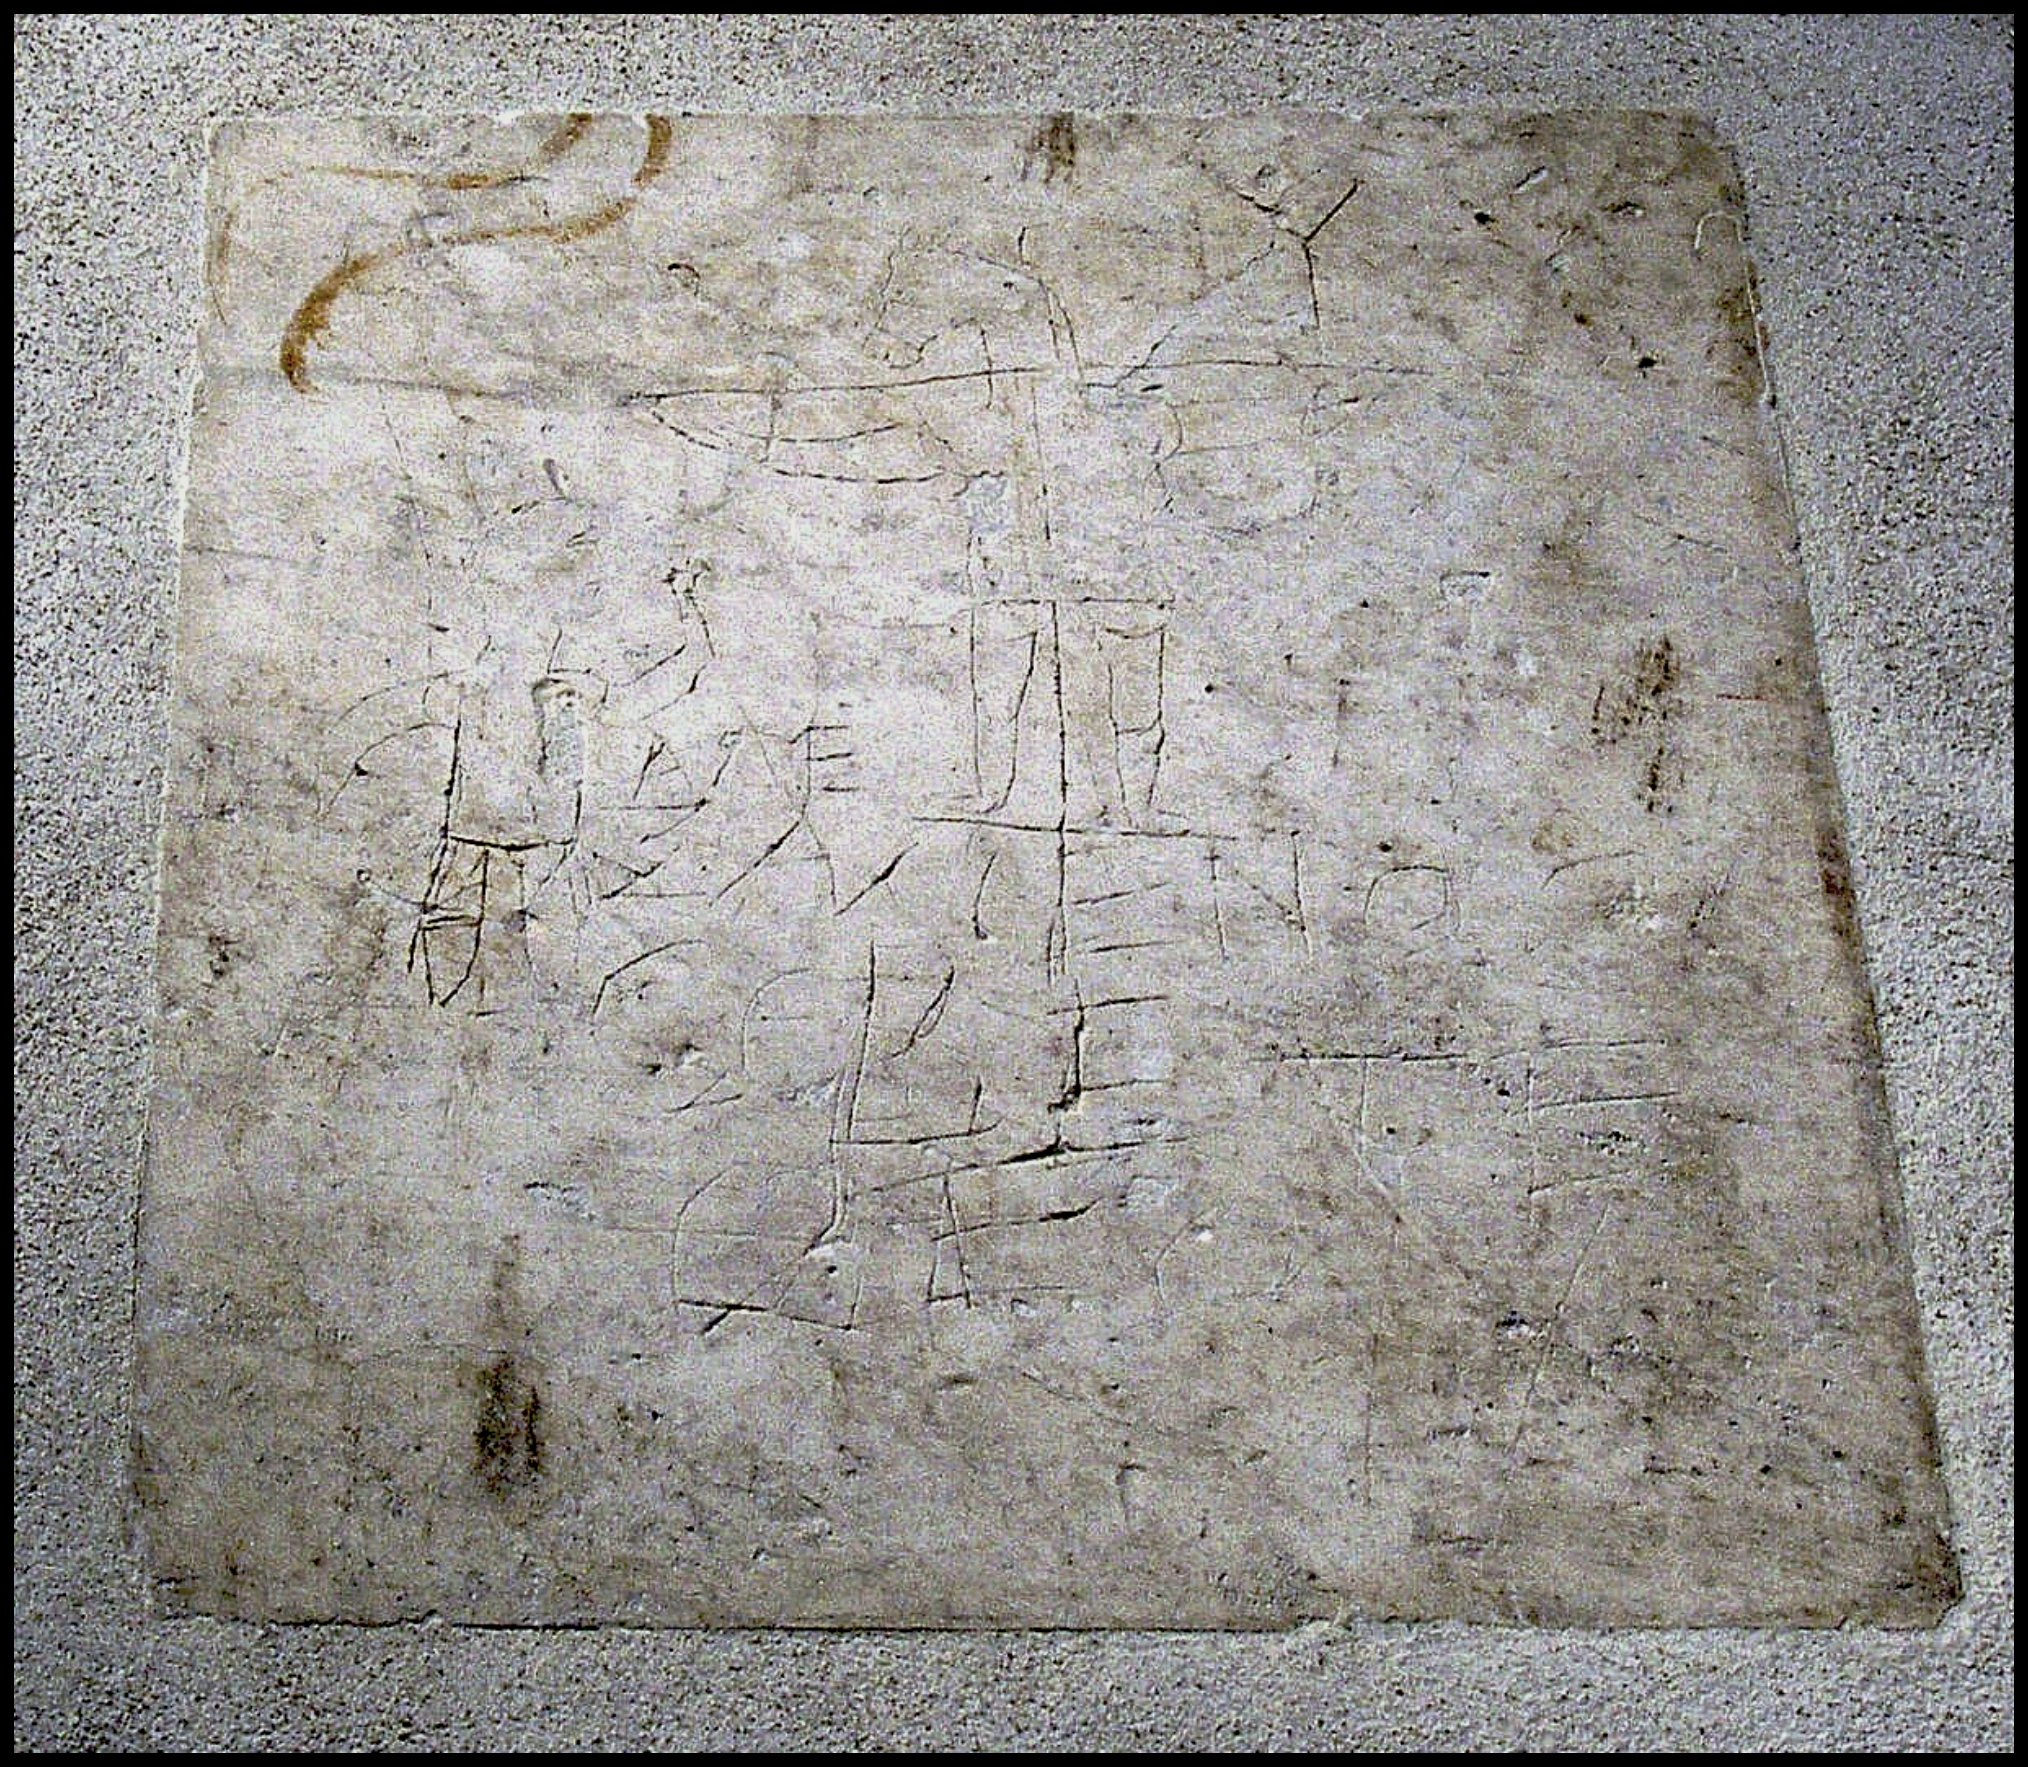 ΑΛΕ
ΞΑΜΕΝΟC
CΕΒΕΤΕ
ΘΕΟΝ